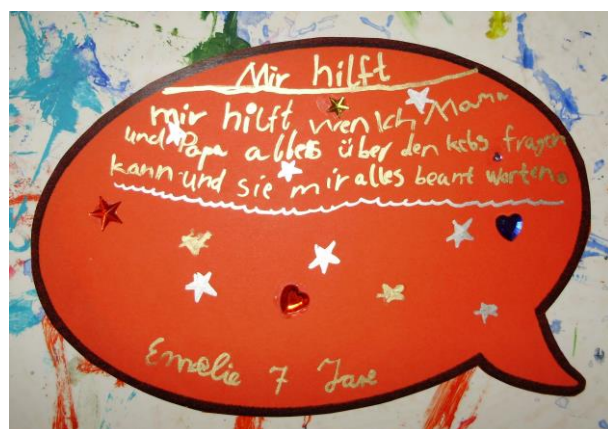 Mir hilft
mir hilft wen ich Mama
und Papa alles über den kebs fragen
kann und sie mir alles beant worten.
Emelie 7 Jare